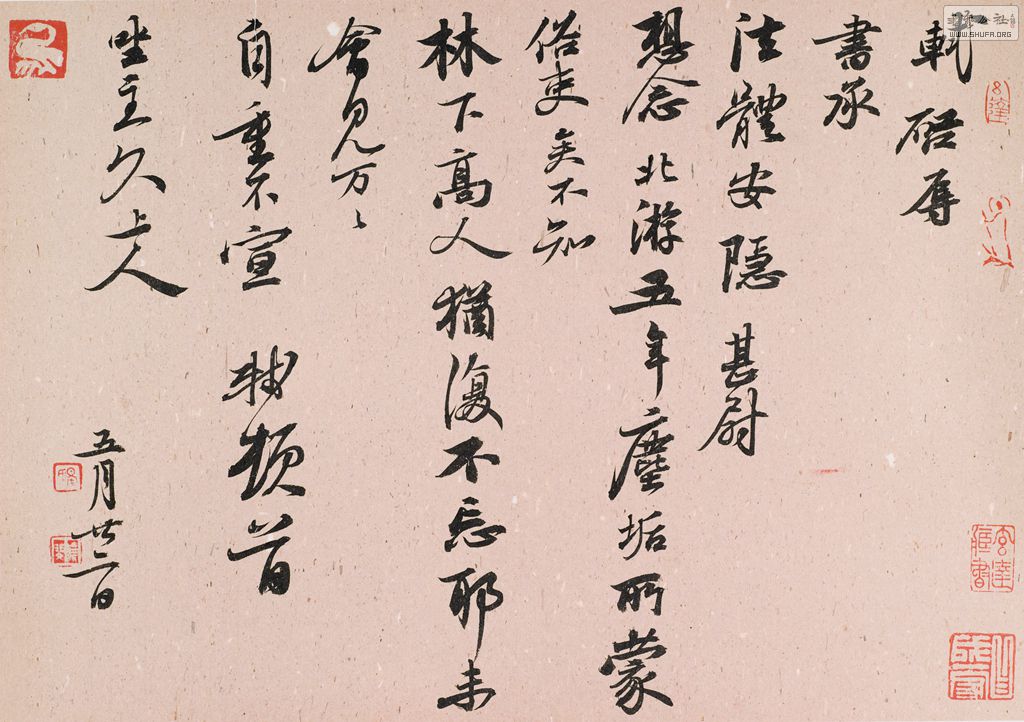 軾啓辱
書承
法體安隱甚尉
想念北游五年塵垢所蒙
俗吏矣不知
林下高人猶復不忘耶未
會見万〻
自重不宣 軾頓首
坐主久上人
五月廿二日
WWW.SHUFA.ORG